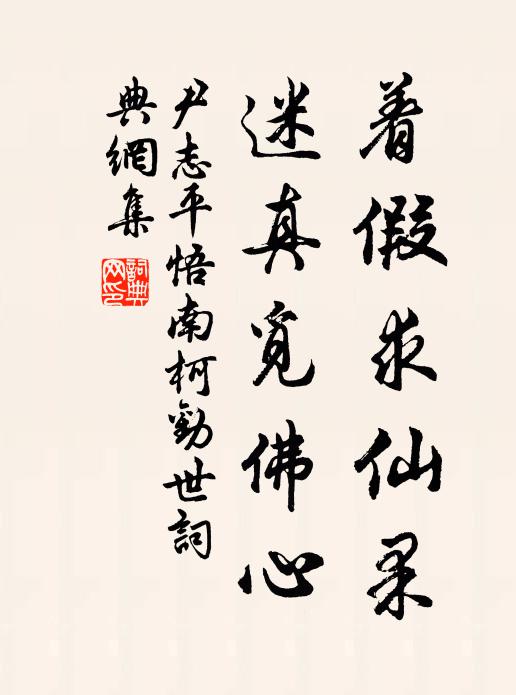 着假求仙果
迷真覓佛心
尹志平悟南柯勸世詞
典網集
詞典網印